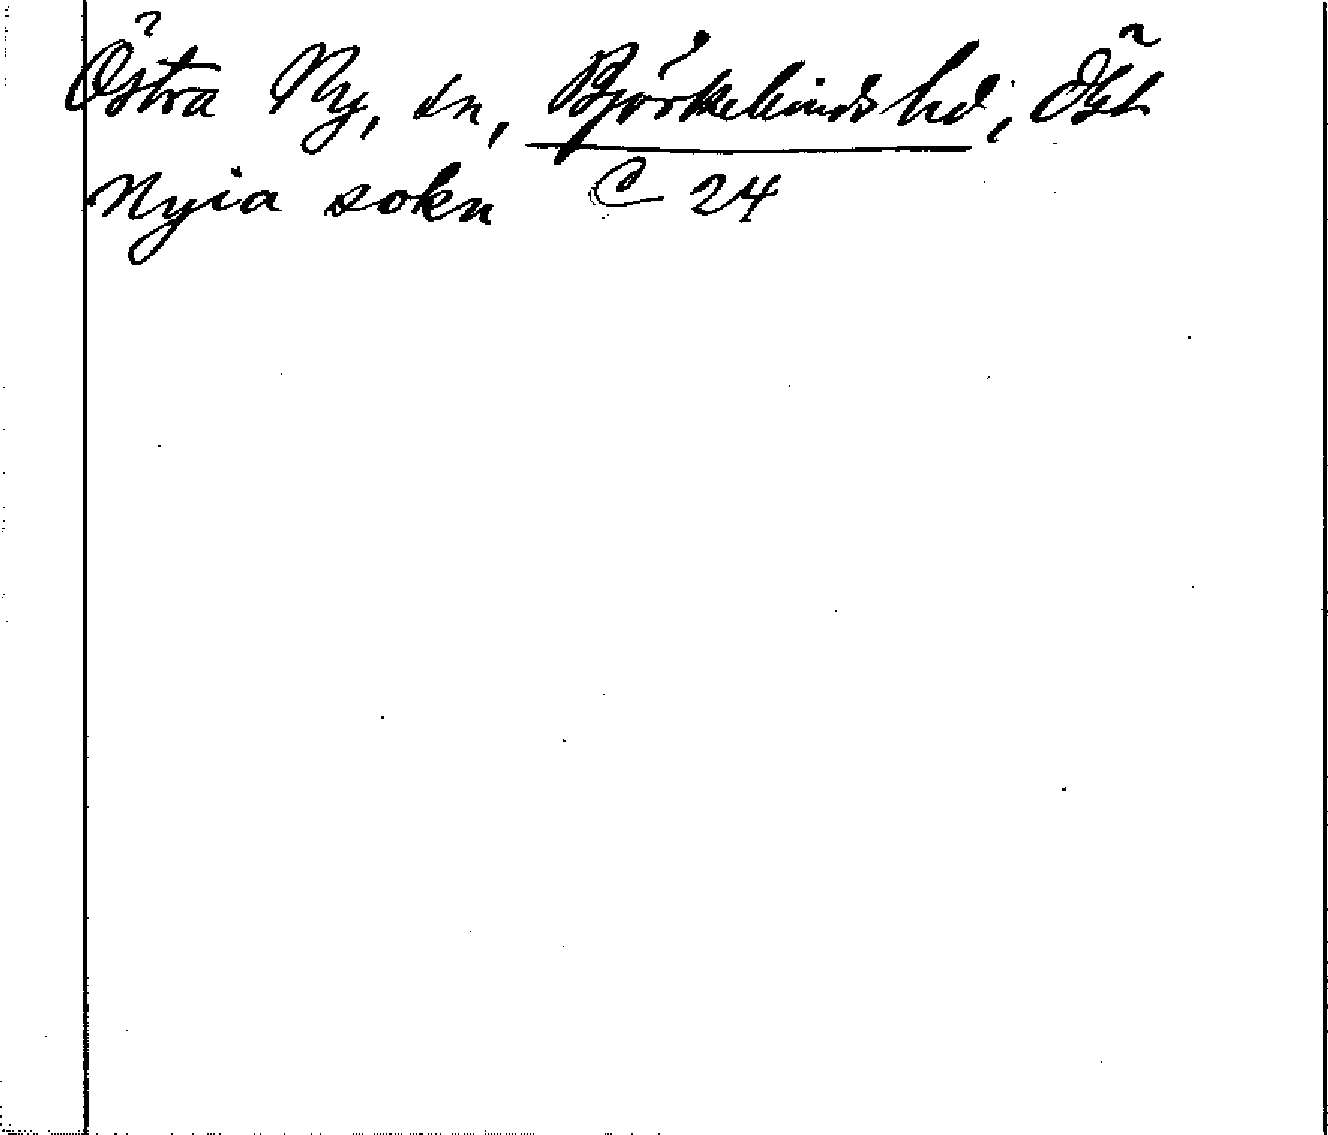 Östra Ny, sn, Björkekinds hd, Ögl
Nyia sokn C 24